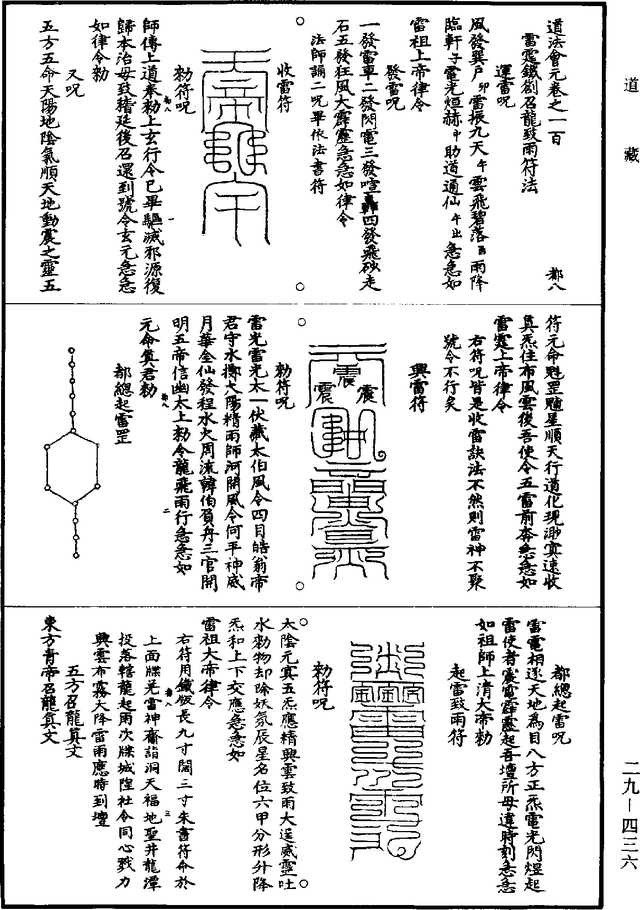 道藏
道法會元卷之一百
都八
雷霆鐵劄召龍致雨符法
運雷呪
風發巽戶卯雷振九天午雲飛碧落酉雨降
臨軒子電光烜赫中助道通仙午出急急如
雷祖上帝律令
發雷呪
一發雷車二發閃電三發喧轟四發飛砂走
石五發狂風大霹靂急急如律令
法師誦二呪畢依法書符
收雷符
勑符呪
師傳上道奉勑上玄行令已畢驅滅邪源復
歸本治毋致稽延後召還到號令玄元急急
如律令勑
又呪
五方五命天陽地陰氣順天地動震之靈五
符元命魁罡隨星順天行道化現渺冥速收
真炁住布風雲後吾使令五雷前奔急急如
雷霆上帝律令
右符呪皆是收雷訣法不然則雷神不聚
號令不行矣
興雷符
震震
勑符呪
雷光雷光太一伏藏太伯風令四目皓翁帝
君守水擲火陽精雨師河開風令何平神威
月華金仙發程水火周流諱伯頁舟三官開
明五帝信幽太上勑令龍飛雨行急急如
元命真君勑
都總起雷罡
都總起雷呪
雷電相逐天地為目八方正炁電光閃煜起
雷使者震電霹靂起吾壇所毋違時刻急急
如祖師上清大帝勑
起雷致雨符
勑符呪
太陰元真五炁應精興雲致雨大逞威靈吐
水勑物却除妖氛辰星名位六甲分形升降
炁和上下交應急急如
雷祖大帝律令
右符用鐵版長九寸闊三寸朱書符命於
上面牒差雷神齎詣洞天福地聖井龍潭
投落轄龍起雨次牒城隍社令同心戮力
興雲布霧大降雷雨應時到壇
五方召龍真文
東方青帝召龍真文
二九—四三六